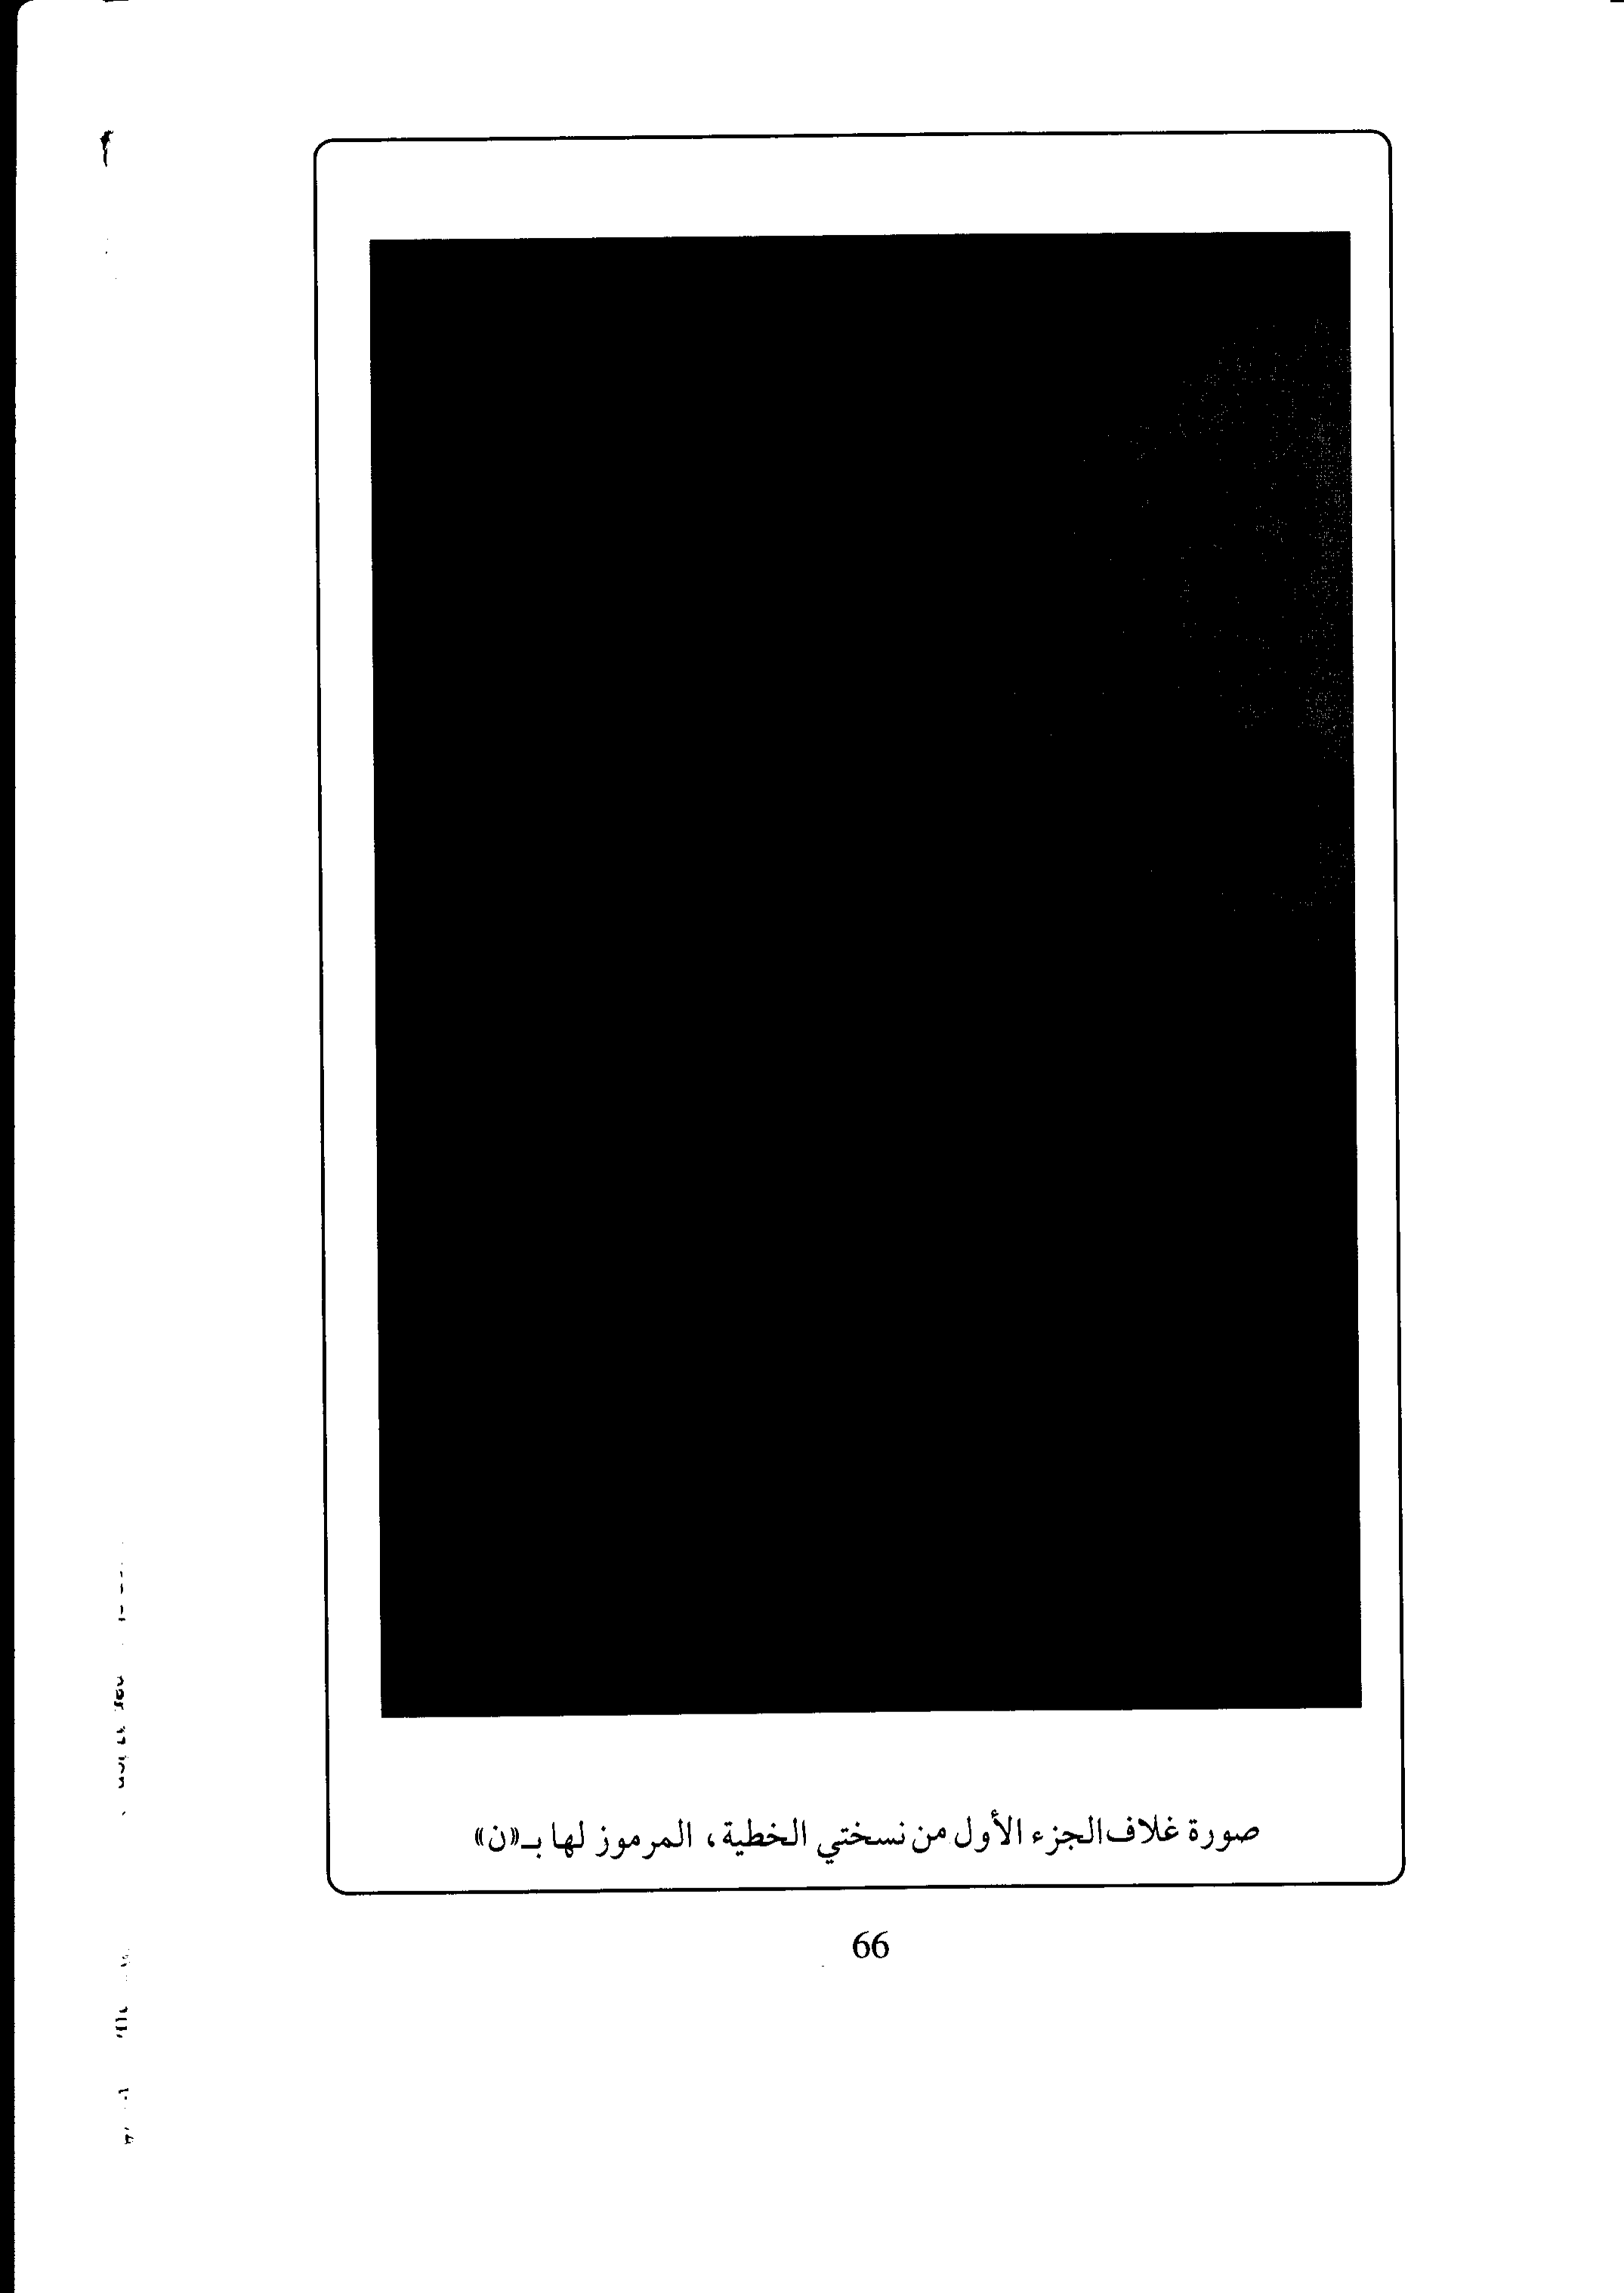 صورة غلاف الجزء الأول من نسختي الخطية، المرموز لها بـ«ن»
66